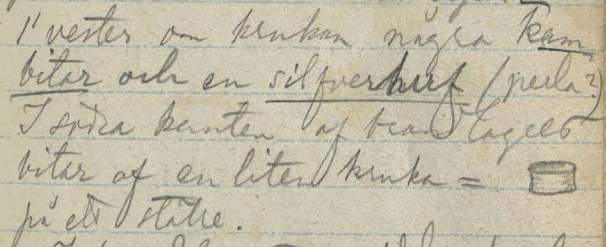 1' vester om krukan några kam
bitar och en silfver (perla?)
I södra kanten af togs
bitar af en liten kruka =
på ett ställe.